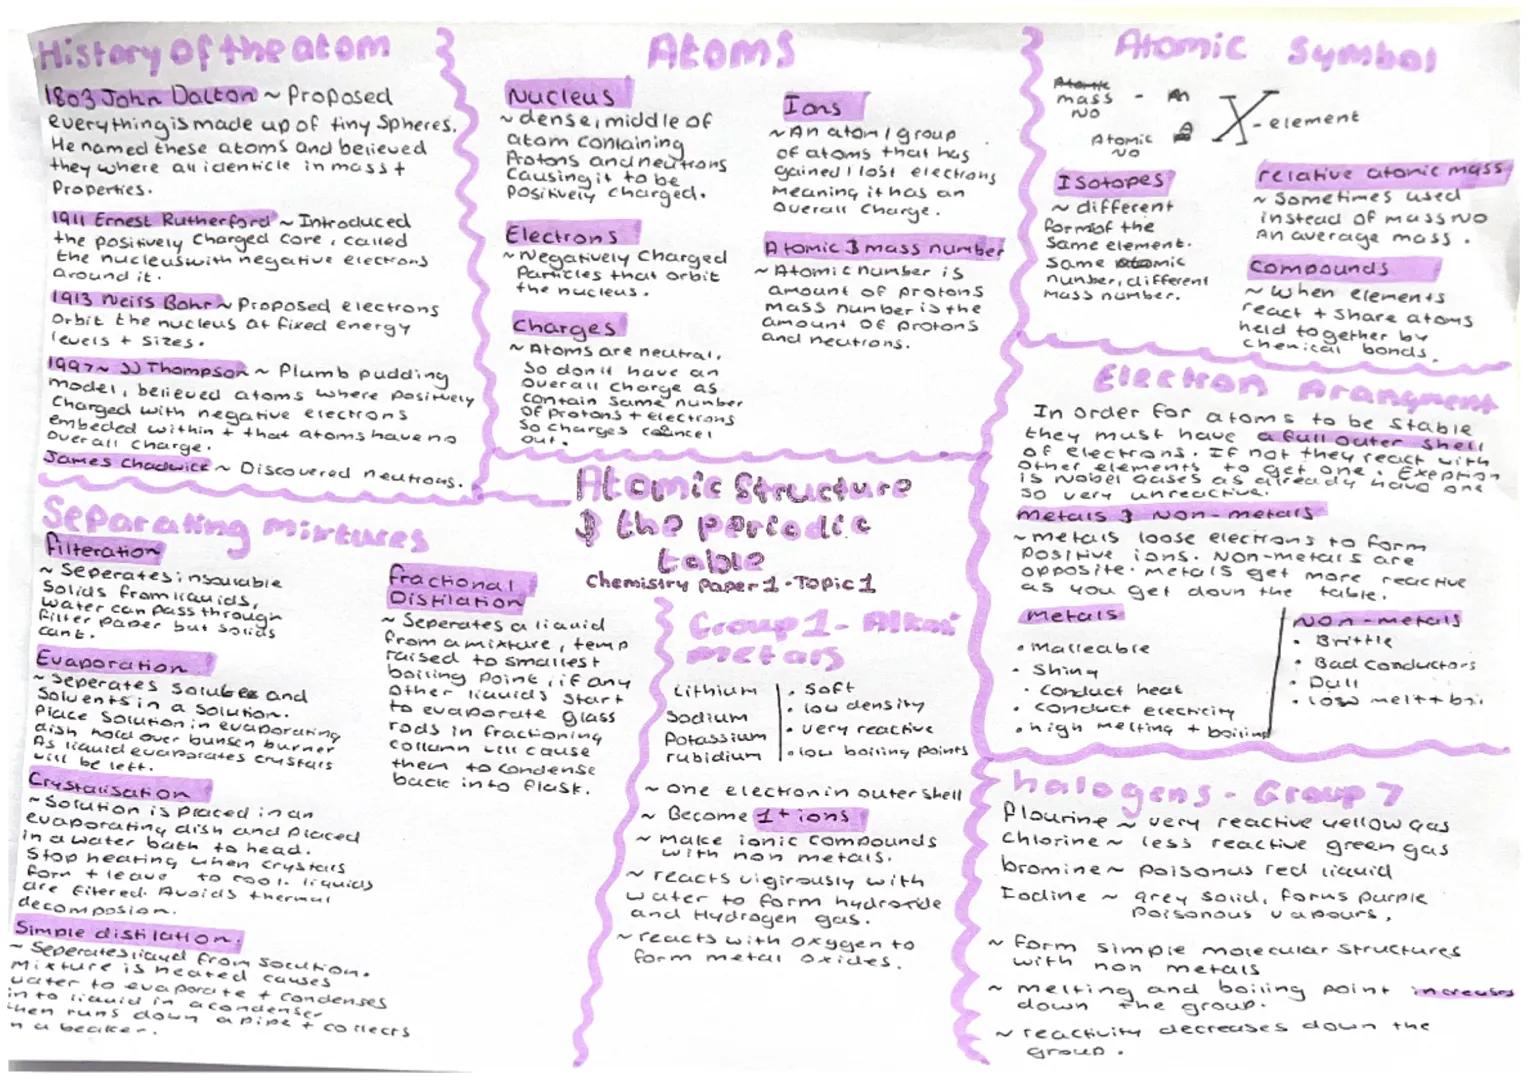 History of the atom
1803 John Dalton ~ Proposed
everything is made up of tiny spheres.
He named these atoms and believed
they where all identicle in mass +
Properties.
1911 Ernest Rutherford ~ Introduced
the positively charged core, called
the nucleus with negative electrons
around it.
1913 Neils Bohr ~ Proposed electrons
Orbit the nucleus at fixed energy
levels + sizes.
1997 ~ JJ Thompson ~ Plumb pudding
model, believed atoms where positively
Charged with negative electrons
embeded within + that atoms have no
overall charge.
James Chadwick ~ Discovered neutrons.
Atoms
Nucleus
~ dense, middle of
atom containing
Protons and neutrons
causing it to be
positively charged.
Electrons
~ Negatively Charged
Particles that orbit
the nucleus.
Charges
~ Atoms are neutral,
so don't have an
overall charge as
contain same number
of protons + electrons
so charges cancel
out.
Ions
~ An atom / group
of atoms that has
gained / lost electrons
Meaning it has an
overall charge.
Atomic & mass number
~ Atomic number is
amount of protons
mass number is the
amount of protons
and neutrons.
Atomic Symbol
mass
No
Atomic
No
X - element
Isotopes
~ different
forms of the
same element.
Same atomic
number, different
mass number.
relative atomic mass
~ Sometimes used
instead of mass No
An average mass.
Compounds
~ when elements
react + share atoms
held together by
chemical bonds.
Electron Arangment
In order for atoms to be stable
they must have a full outer shell
of electrons. If not they react with
other elements to get one. Exeption
is Nobel gases as already have one
so very unreactive.
metals & Non-metals
~ metals loose electrons to form
positive ions. Non-metals are
opposite. metals get more reactive
as you get down the table.
metals
• Malleable
• Shiny
• Conduct heat
• conduct electicity
• high melting + boiling
Non-metals
• Brittle
• Bad conductors
• Dull
• low melt + boi.
Atomic Structure
& the periodic
table
Chemistry Paper 1 - Topic 1
Separating mixtures
filteration
~ Seperates insoluable
Solids from liquids,
water can pass through
filter paper but solids
cant.
Evaporation
~ Seperates solubes and
Solvents in a solution.
Place solution in evaporating
dish hold over bunsen burner
As liquid evaporates crystals
will be left.
Crystalisation
~ Solution is placed in an
evaporating dish and placed
in a water bath to head.
Stop heating when crystals
form + leave to cool. liquids
are filtered. Avoids thermal
decomposion.
Simple distilation.
~ Seperates liquid from solution.
Mixture is heated causes
water to evaporate + condenses
into liquid in a condenser
then runs down a pipe + collects
in a beaker.
fractional
Distilation
~ Seperates a liquid
from a mixture, temp
raised to smallest
boiling point, if any
other liquids start
to evaporate glass
rods in fractioning
collumn will cause
them to condense
back into flask.
Group 1 - Alkali
metals
Lithium
Sodium
Potassium
rubidium
• Soft
• low density
• very reactive
• low boiling points
~ one electron in outer shell
~ Become 1+ ions
~ make ionic compounds
with non metals.
~ reacts vigirously with
water to form hydroxide
and Hydrogen gas.
~ reacts with oxygen to
form metal oxides.
halogens - Group 7
Flourine ~ very reactive yellow gas
Chlorine ~ less reactive green gas
bromine ~ poisonus red liquid
Iodine ~ grey solid, forms purple
poisonous vapours.
~ form simple molecular structures
with non metals
~ melting and boiling point increases
down the group.
~ reactivity decreases down the
group.